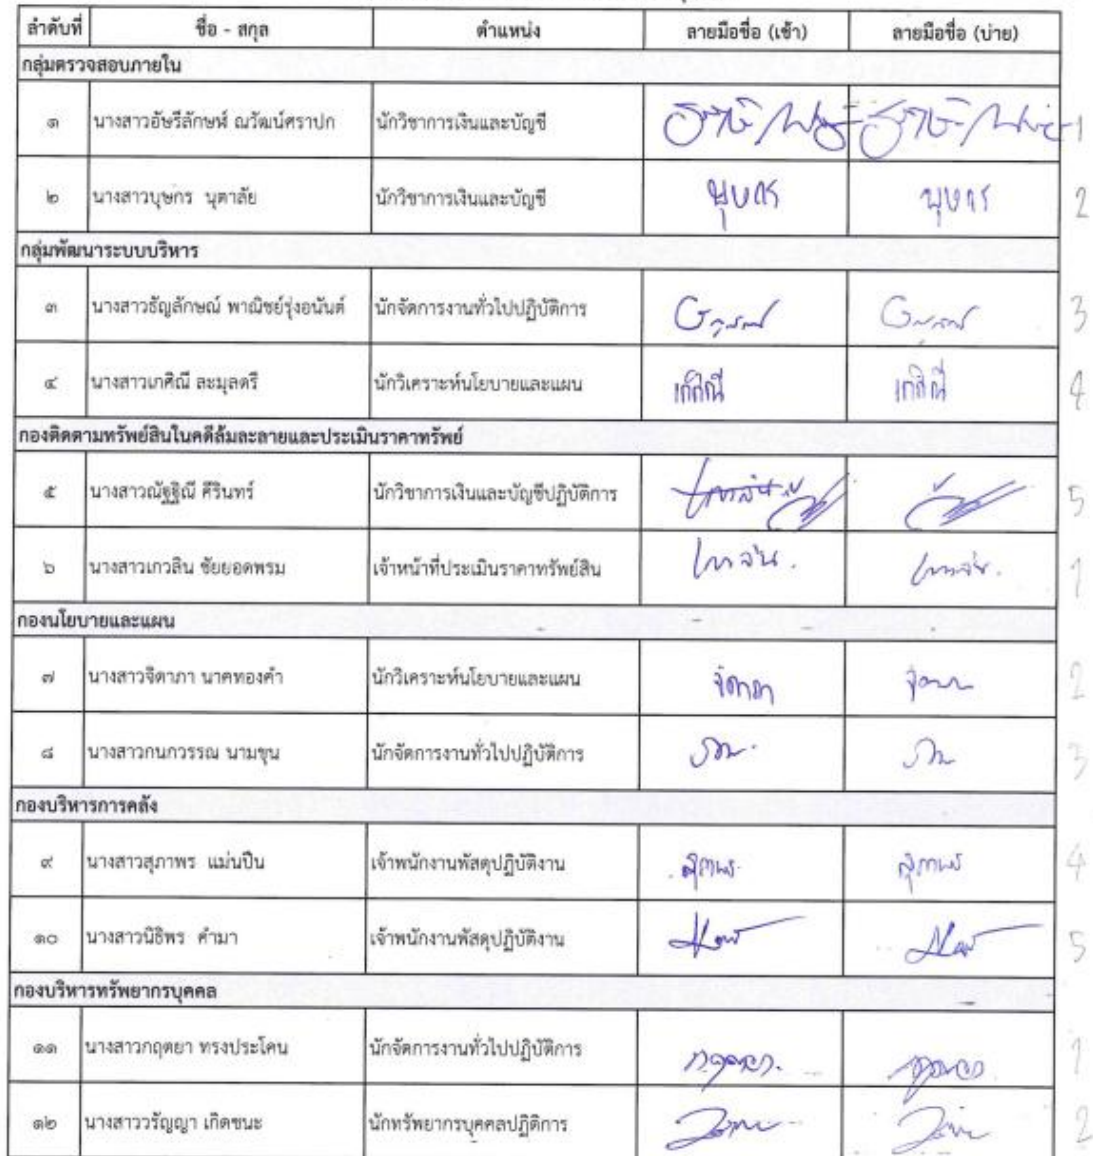 ลำดับที่ ชื่อ - สกุล ตำแหน่ง ลายมือชื่อ (เช้า) ลายมือชื่อ (บ่าย)
กลุ่มตรวจสอบภายใน
๑ นางสาวอัษรีลักษห์ ณวัฒน์ศราปก นักวิชาการเงินและบัญชี 1
๒ นางสาวบุษกร นุตาลัย นักวิชาการเงินและบัญชี บุษกร บุษกร 2
กลุ่มพัฒนาระบบบริหาร
๓ นางสาวธัญลักษณ์ พาณิชย์รุ่งอนันต์ นักจัดการงานทั่วไปปฏิบัติการ 3
๔ นางสาวเกศิณี ละมุลตรี นักวิเคราะห์นโยบายและแผน เกศิณี เกศิณี 4
กองติดตามทรัพย์สินในคดีล้มละลายและประเมินราคาทรัพย์
๕ นางสาวณัฐฐิณี ศีรินทร์ นักวิชาการเงินและบัญชีปฏิบัติการ 5
๖ นางสาวเกวลิน ชัยยอดพรม เจ้าหน้าที่ประเมินราคาทรัพย์สิน เกวลิน. เกวลิน. 1
กองนโยบายและแผน
๗ นางสาวจิดาภา นาคทองคำ นักวิเคราะห์นโยบายและแผน จิดาภา 2
๘ นางสาวกนกวรรณ นามขุน นักจัดการงานทั่วไปปฏิบัติการ 3
กองบริหารการคลัง
๙ นางสาวสุภาพร แม่นปืน เจ้าพนักงานพัสดุปฏิบัติงาน สุภาพร สุภาพร 4
๑๐ นางสาวนิธิพร คำมา เจ้าพนักงานพัสดุปฏิบัติงาน 5
กองบริหารทรัพยากรบุคคล
๑๑ นางสาวกฤตยา ทรงประโคน นักจัดการงานทั่วไปปฏิบัติการ 1
๑๒ นางสาววรัญญา เกิดชนะ นักทรัพยากรบุคคลปฏิติการ 2